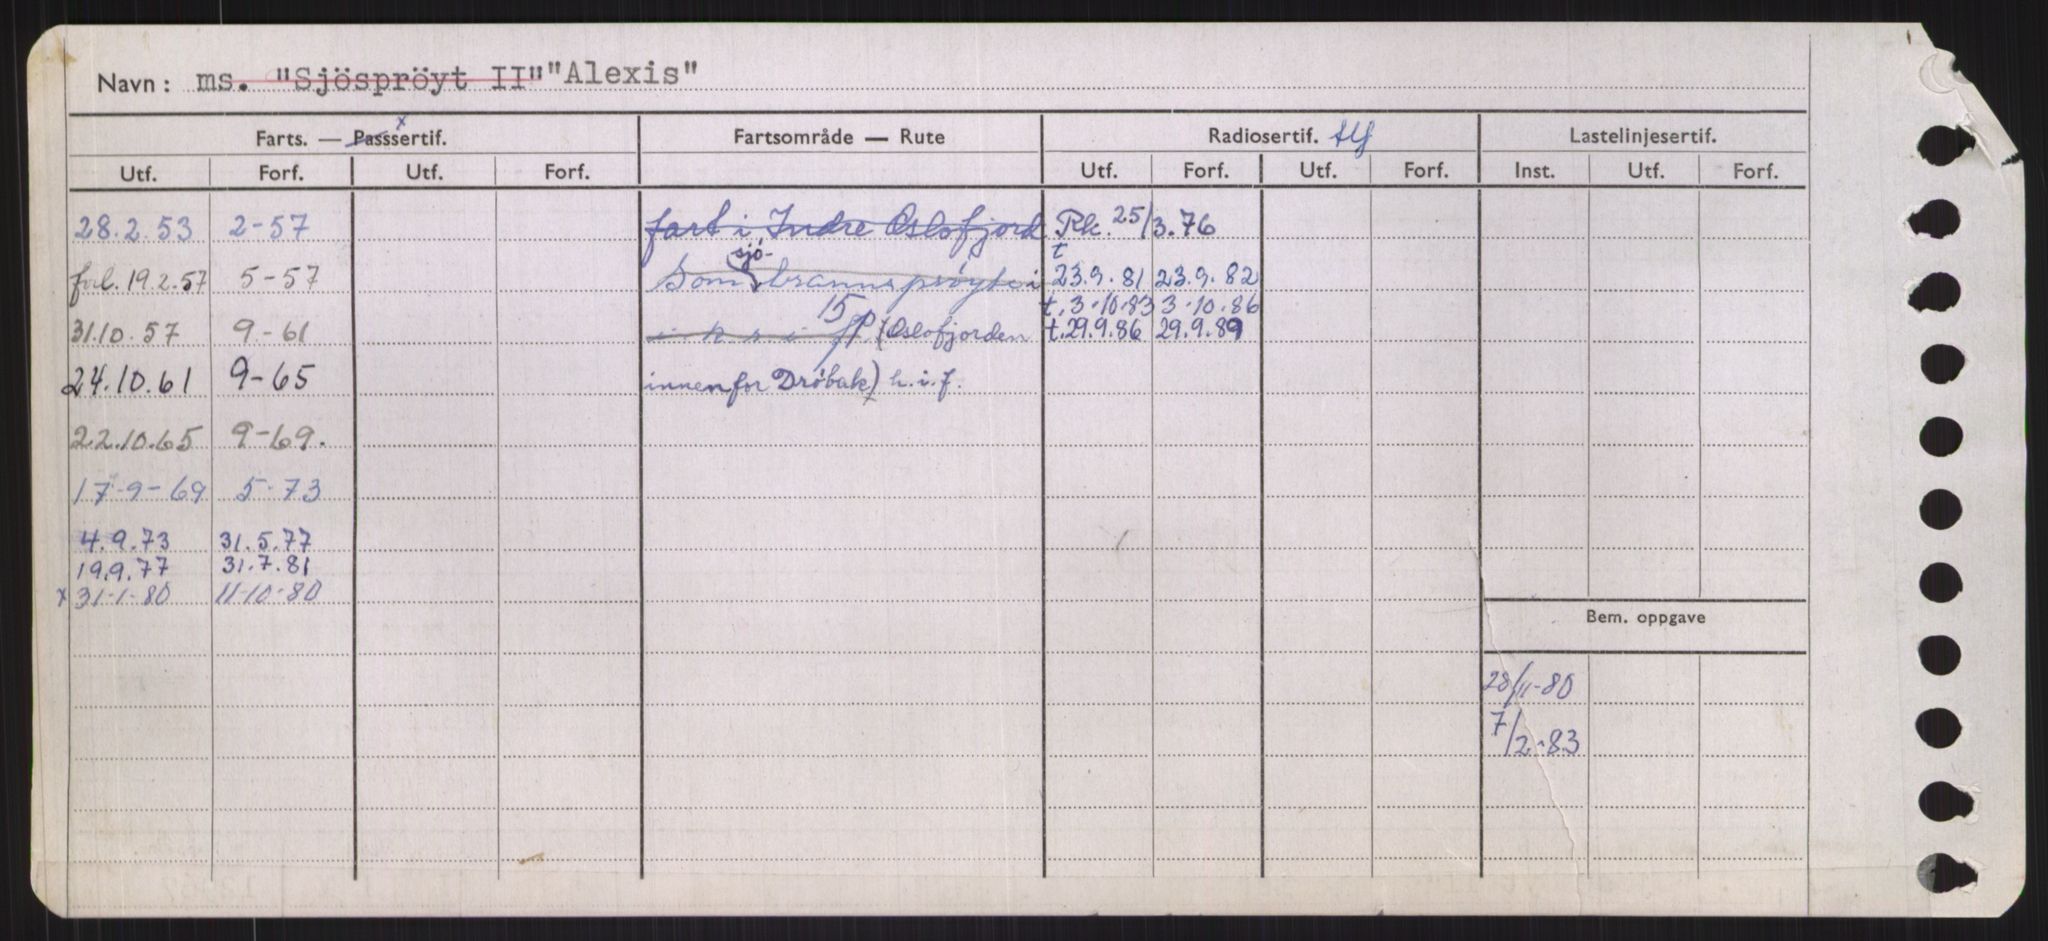 Navn: ms. "Sjöspröyt II" "Alexis"
Farts. — Passsertif. x Fartsområde — Rute Radiosertif. tlf Lastelinjesertif.
Utf. Forf. Utf. Forf. Utf. Forf. Utf. Forf. Inst. Utf. Forf.
28.2.53 2-57 fart i Indre Oslofjord Rk. 25/3.76
sjö- t
forl. 19.2.57 5-57 Som brannsprøyte i 23.9.81 23.9.82
15 t. 3.10.83 3.10.86
31.10.57 9-61 (Oslofjorden t. 29.9.86 29.9.89
24.10.61 9-65 innenfor Drøbak) h.i.f.
22.10.65 9-69.
17-9-69 5-73
4.9.73 31.5.77
19.9.77 31.7.81
x 31-1-80 11-10-80
Bem. oppgave
28/11-80
7/2-83